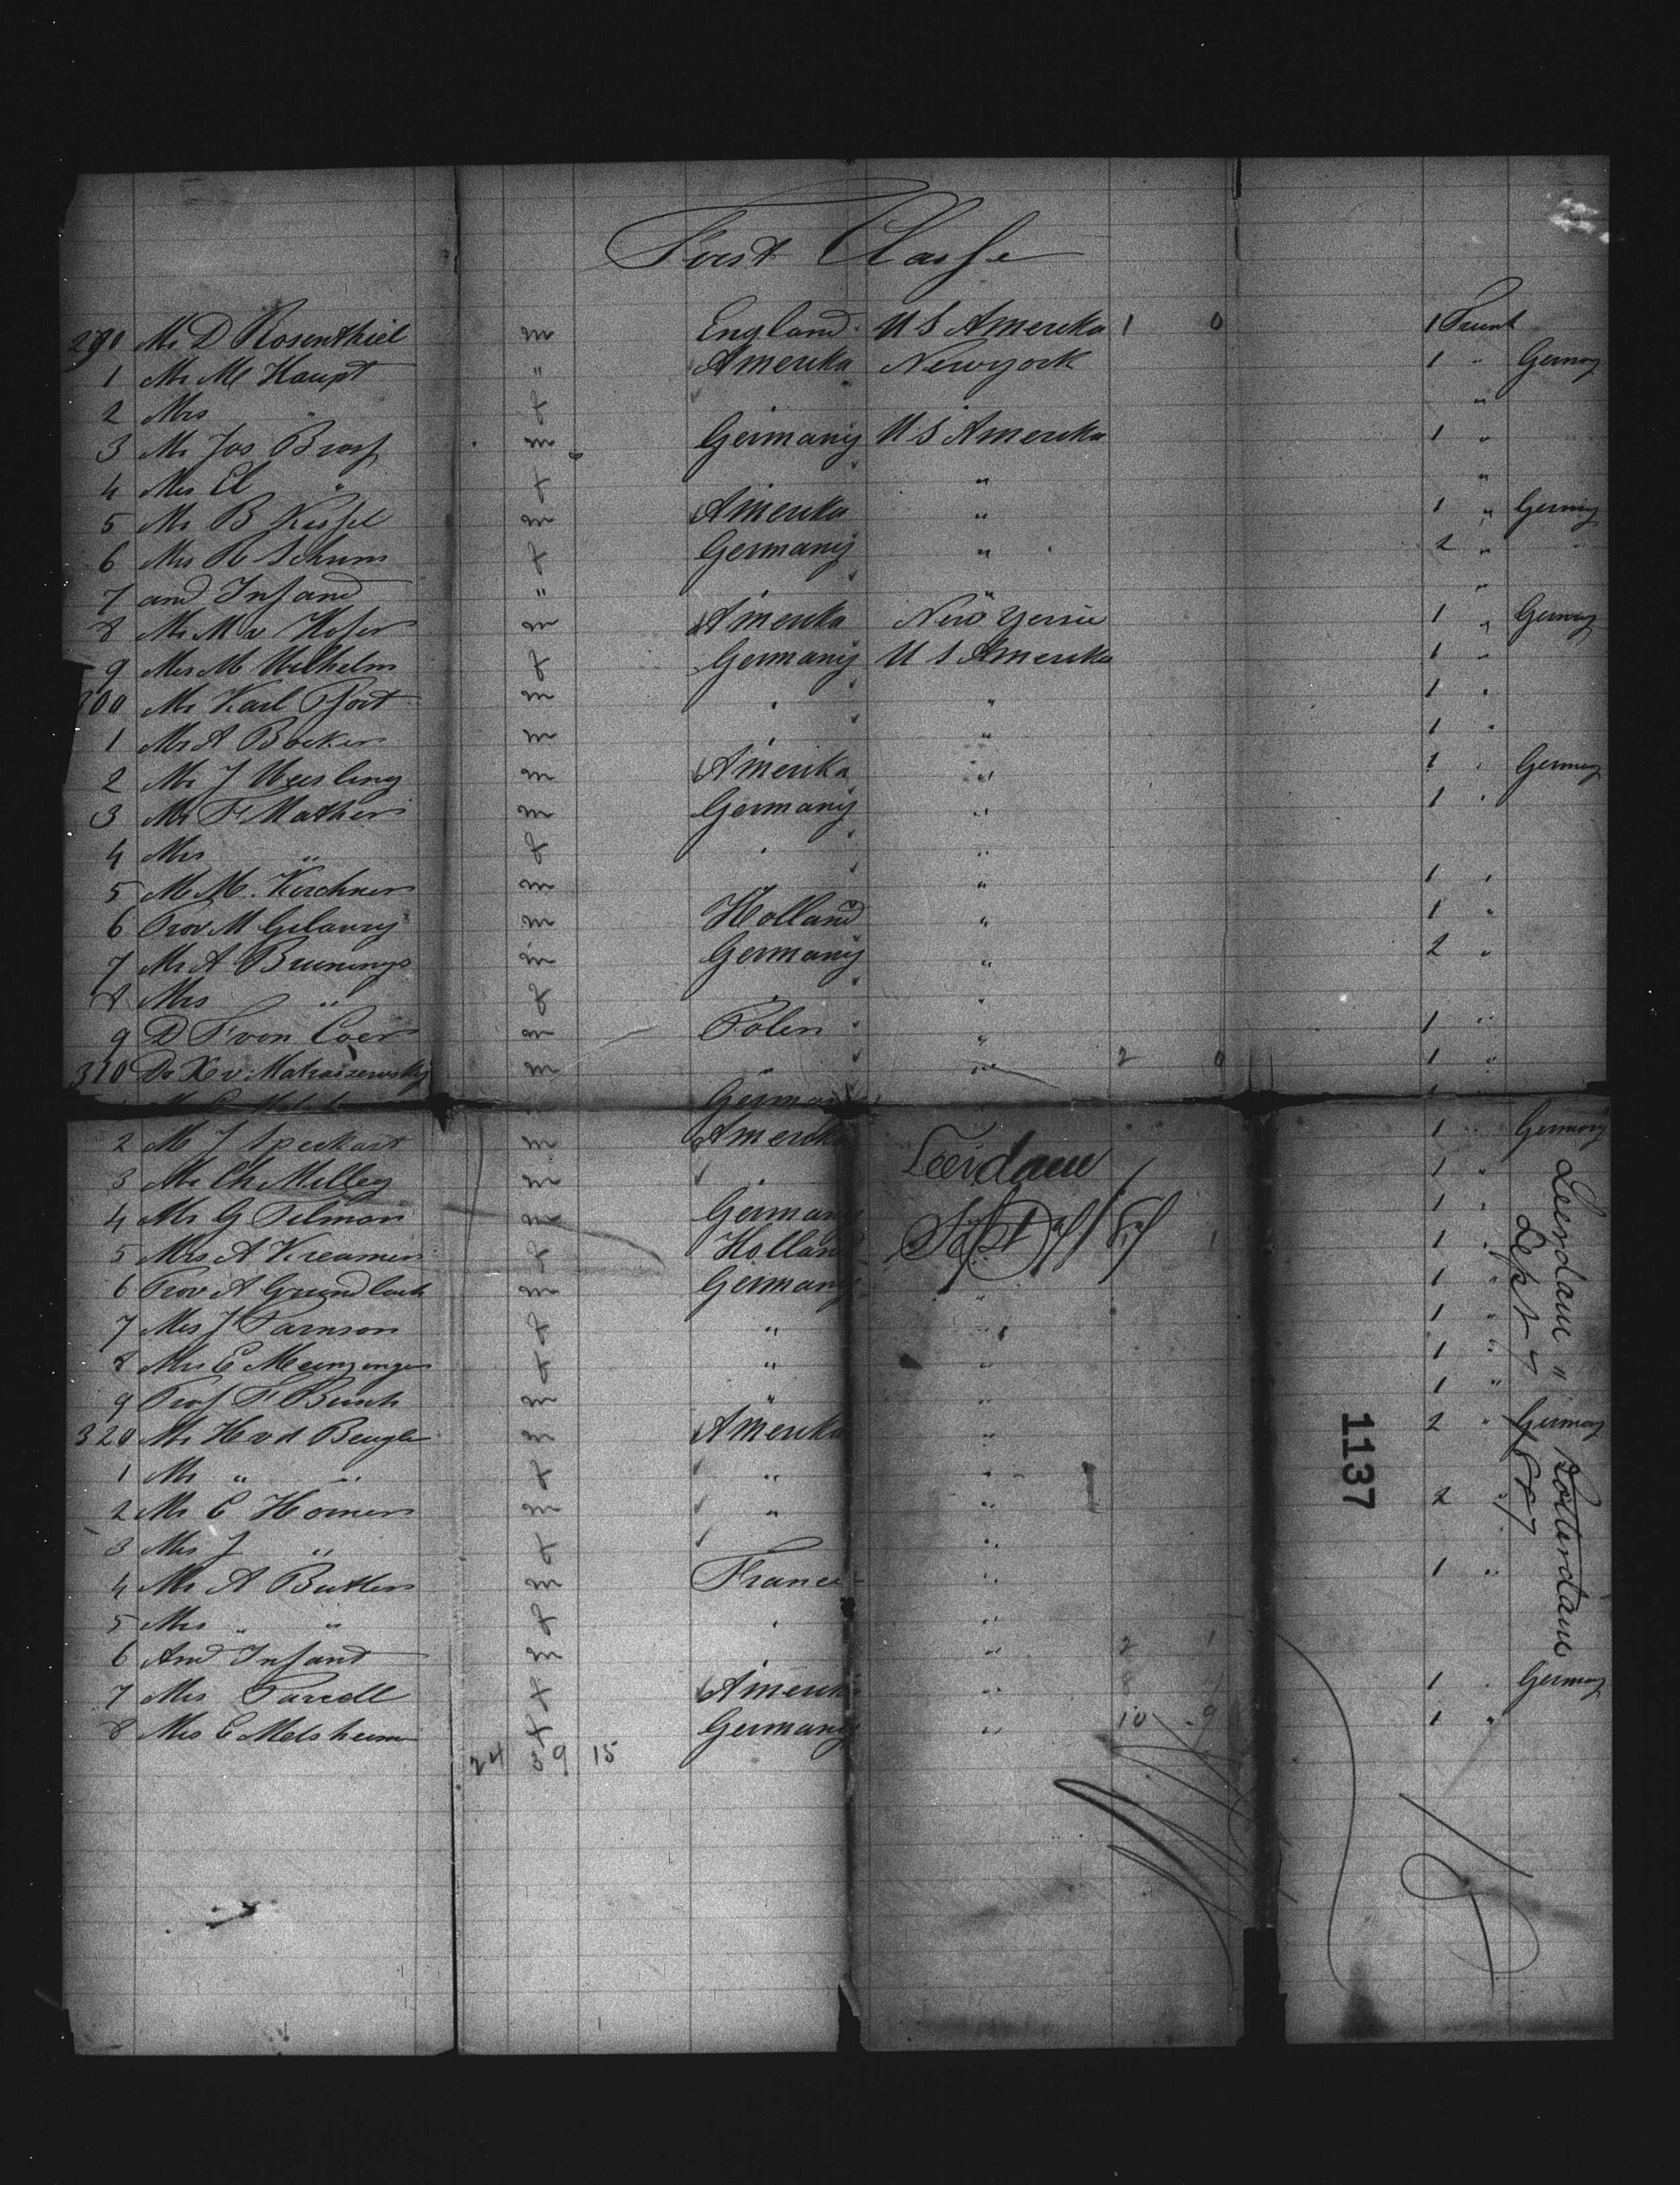 First Classe
290 Mr D Rosenthiel m England U S Amerika 1 0 1 Trunk
1 Mr M Haupt " Amerika Newyork 1 " Germy
2 Mrs " f "
3 Mr Jos Brass m Germany U S Amerika 1 "
4 Mrs El " f " "
5 Mr B Kessel m Amerika " 1 " Germy
6 Mrs R Schum f Germany " 2 "
7 and Infand " " "
8 Mr M v Hofer m Amerika New Yersie 1 " Germy
9 Mrs M Wilhelm f Germany U S Amerika 1 "
300 Mr Karl Pfort m " " 1 "
1 Mr A Bocker m " " 1 "
2 Mr J Wesling m Amerika " 1 " Germany
3 Mr F Mather m Germany " 1 "
4 Mrs " f " "
5 Mr M. Kirchner m " 1 "
6 Prov M m Holland " 1 "
7 Mr A Brunings m Germany " 2 "
8 Mrs " f " "
9 D F von Coer m Polen " 1 "
310 Dr X v. Matraszewsky m " 2 0 1 "
German
2 M J Speckart m Amerika 1 " Germany
3 Mr Ch Milley m " 1 "
4 Mr G Tilman m Germany 1 "
5 Mrs A Kreamer f Holland 1 1 "
6 Prov A Grundlach m Germany " 1 "
7 Mrs J Parnson f " " 1 "
8 Mrs E Meunzinger f " " 1 "
9 Prof F Bunch m " " 1 "
320 Mr H v d Beugle m Amerika " 2 " Germany
1 Mr " " f " "
2 Mr C Homer m " " 2 "
3 Mrs J " f "
4 Mr A Butler m France " 1 "
5 Mrs " " f " "
6 And Infant m " " 2 1
7 Mrs Parcell f Amerika " 8 1 " Germany
8 Mrs C Melsheim f Germany " 10 9 1 "
24 39 15
Leerdam
Sept 7/87
Leerdam " Rotterdam
Sept 7
1887
1137